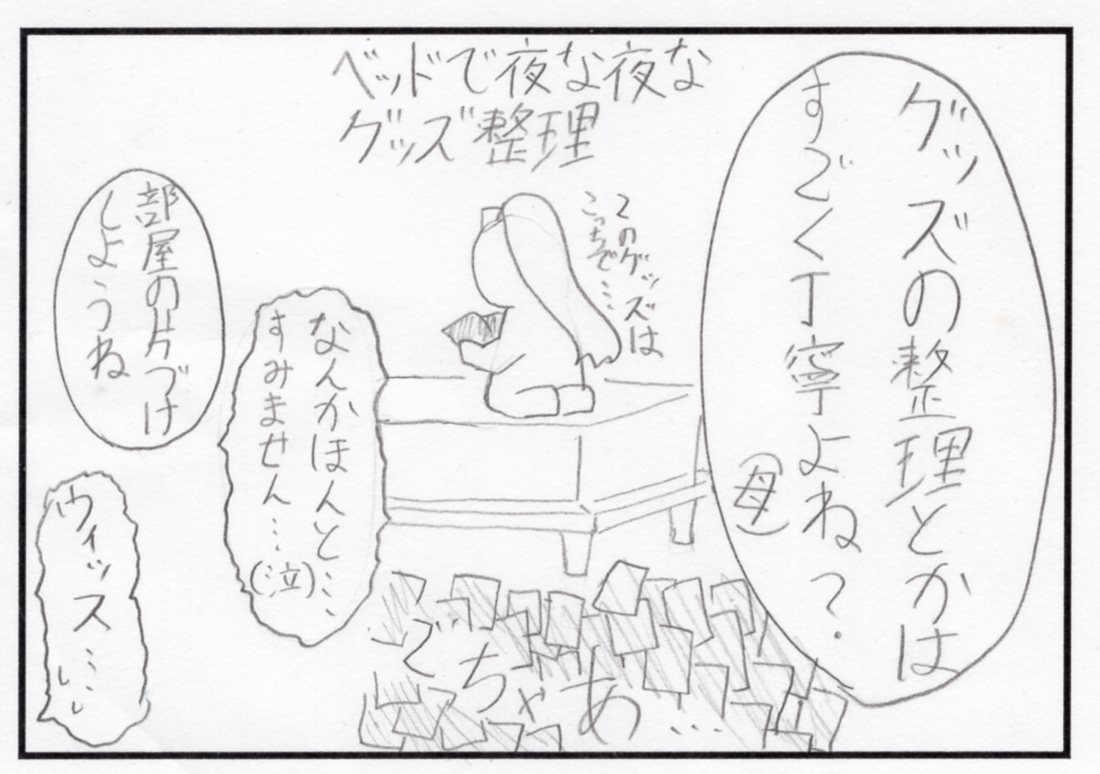 ベッドで夜な夜な
グッズ整理
グッズの整理とかは
すごく丁寧よね?
(母)
このグッズは
こっちで…
なんかほんと…
すみません…(泣)
部屋の片づけ
しようね
ウィッス……
ごちゃあ…